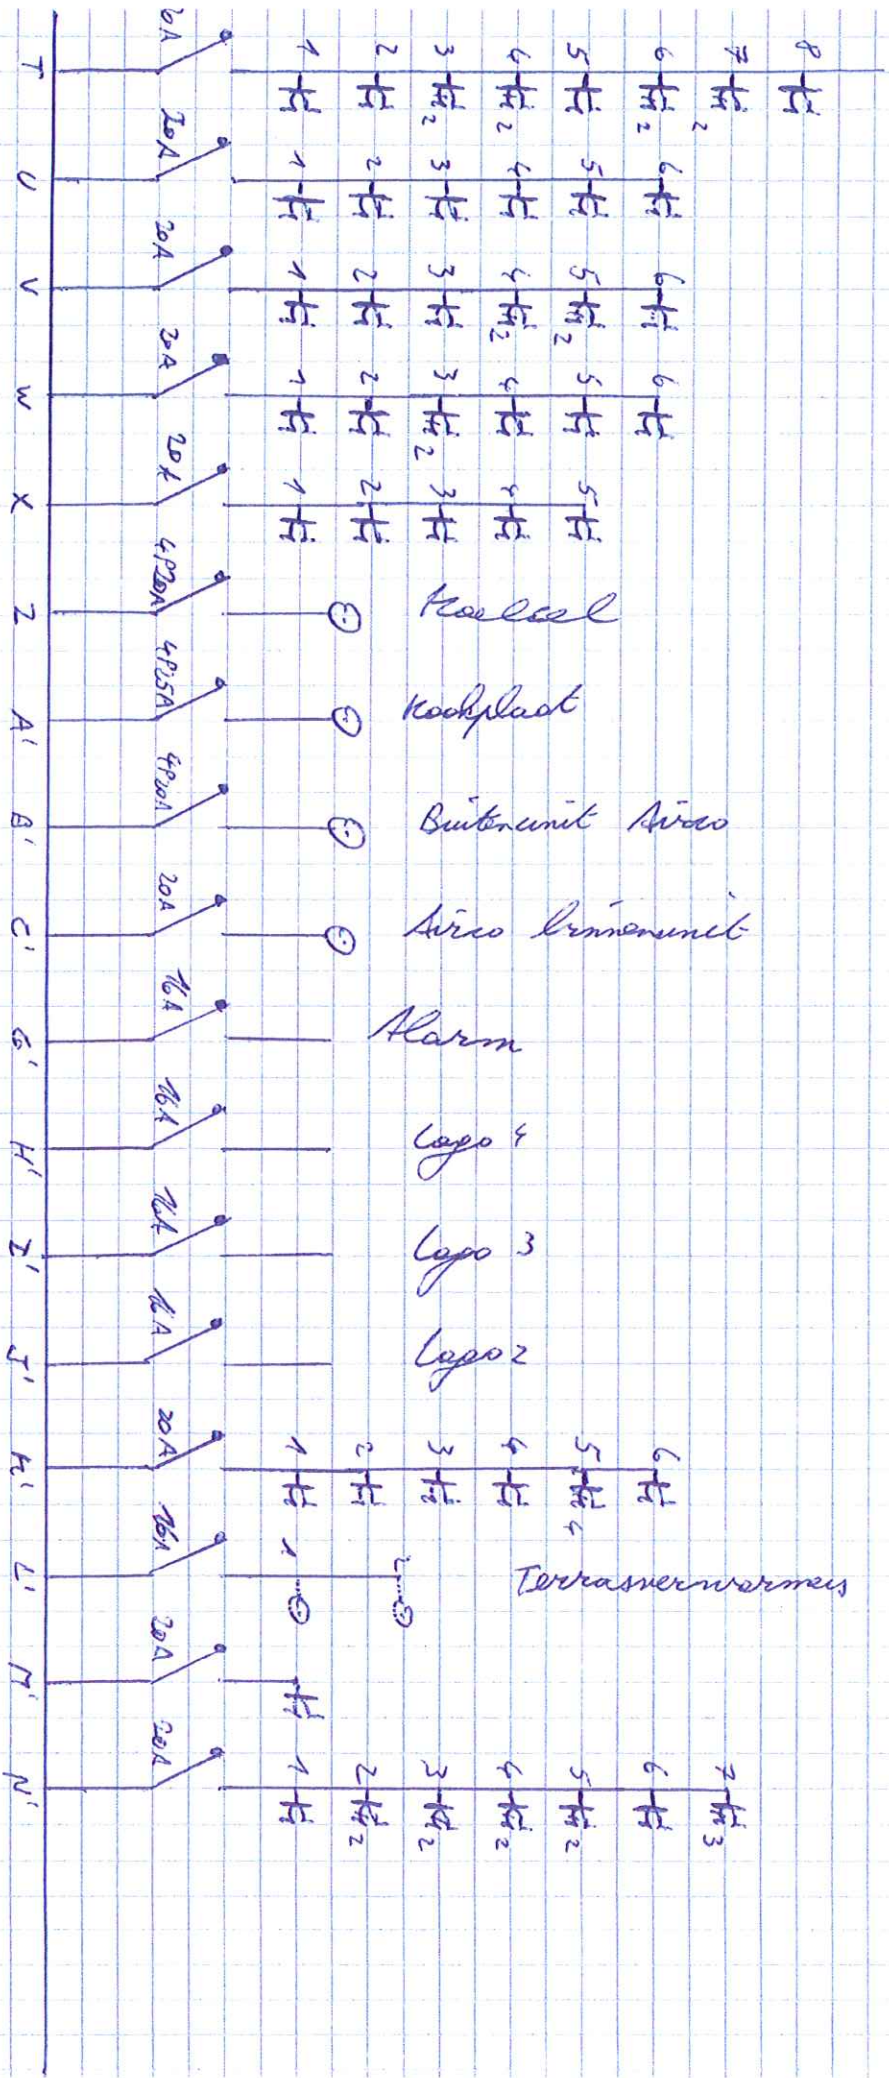 T 20A 1 2 3 4 5 6 7 8
2 2 2 2
U 20A 1 2 3 4 5 6
V 20A 1 2 3 4 5 6
2 2
W 20A 1 2 3 4 5 6
2
X 20A 1 2 3 4 5
Z 4P20A Koelcel
A' 4P25A Kookplaat
B' 4P20A Buitenunit Airco
C' 20A Airco binnenunit
G' 16A Alarm
H' 16A Logo 4
I' 16A Logo 3
J' 16A Logo 2
K' 20A 1 2 3 4 5 6
4
L' 16A 1 2 Terrasverwarmers
M' 20A
N' 20A 1 2 3 4 5 6 7
2 2 2 2 3